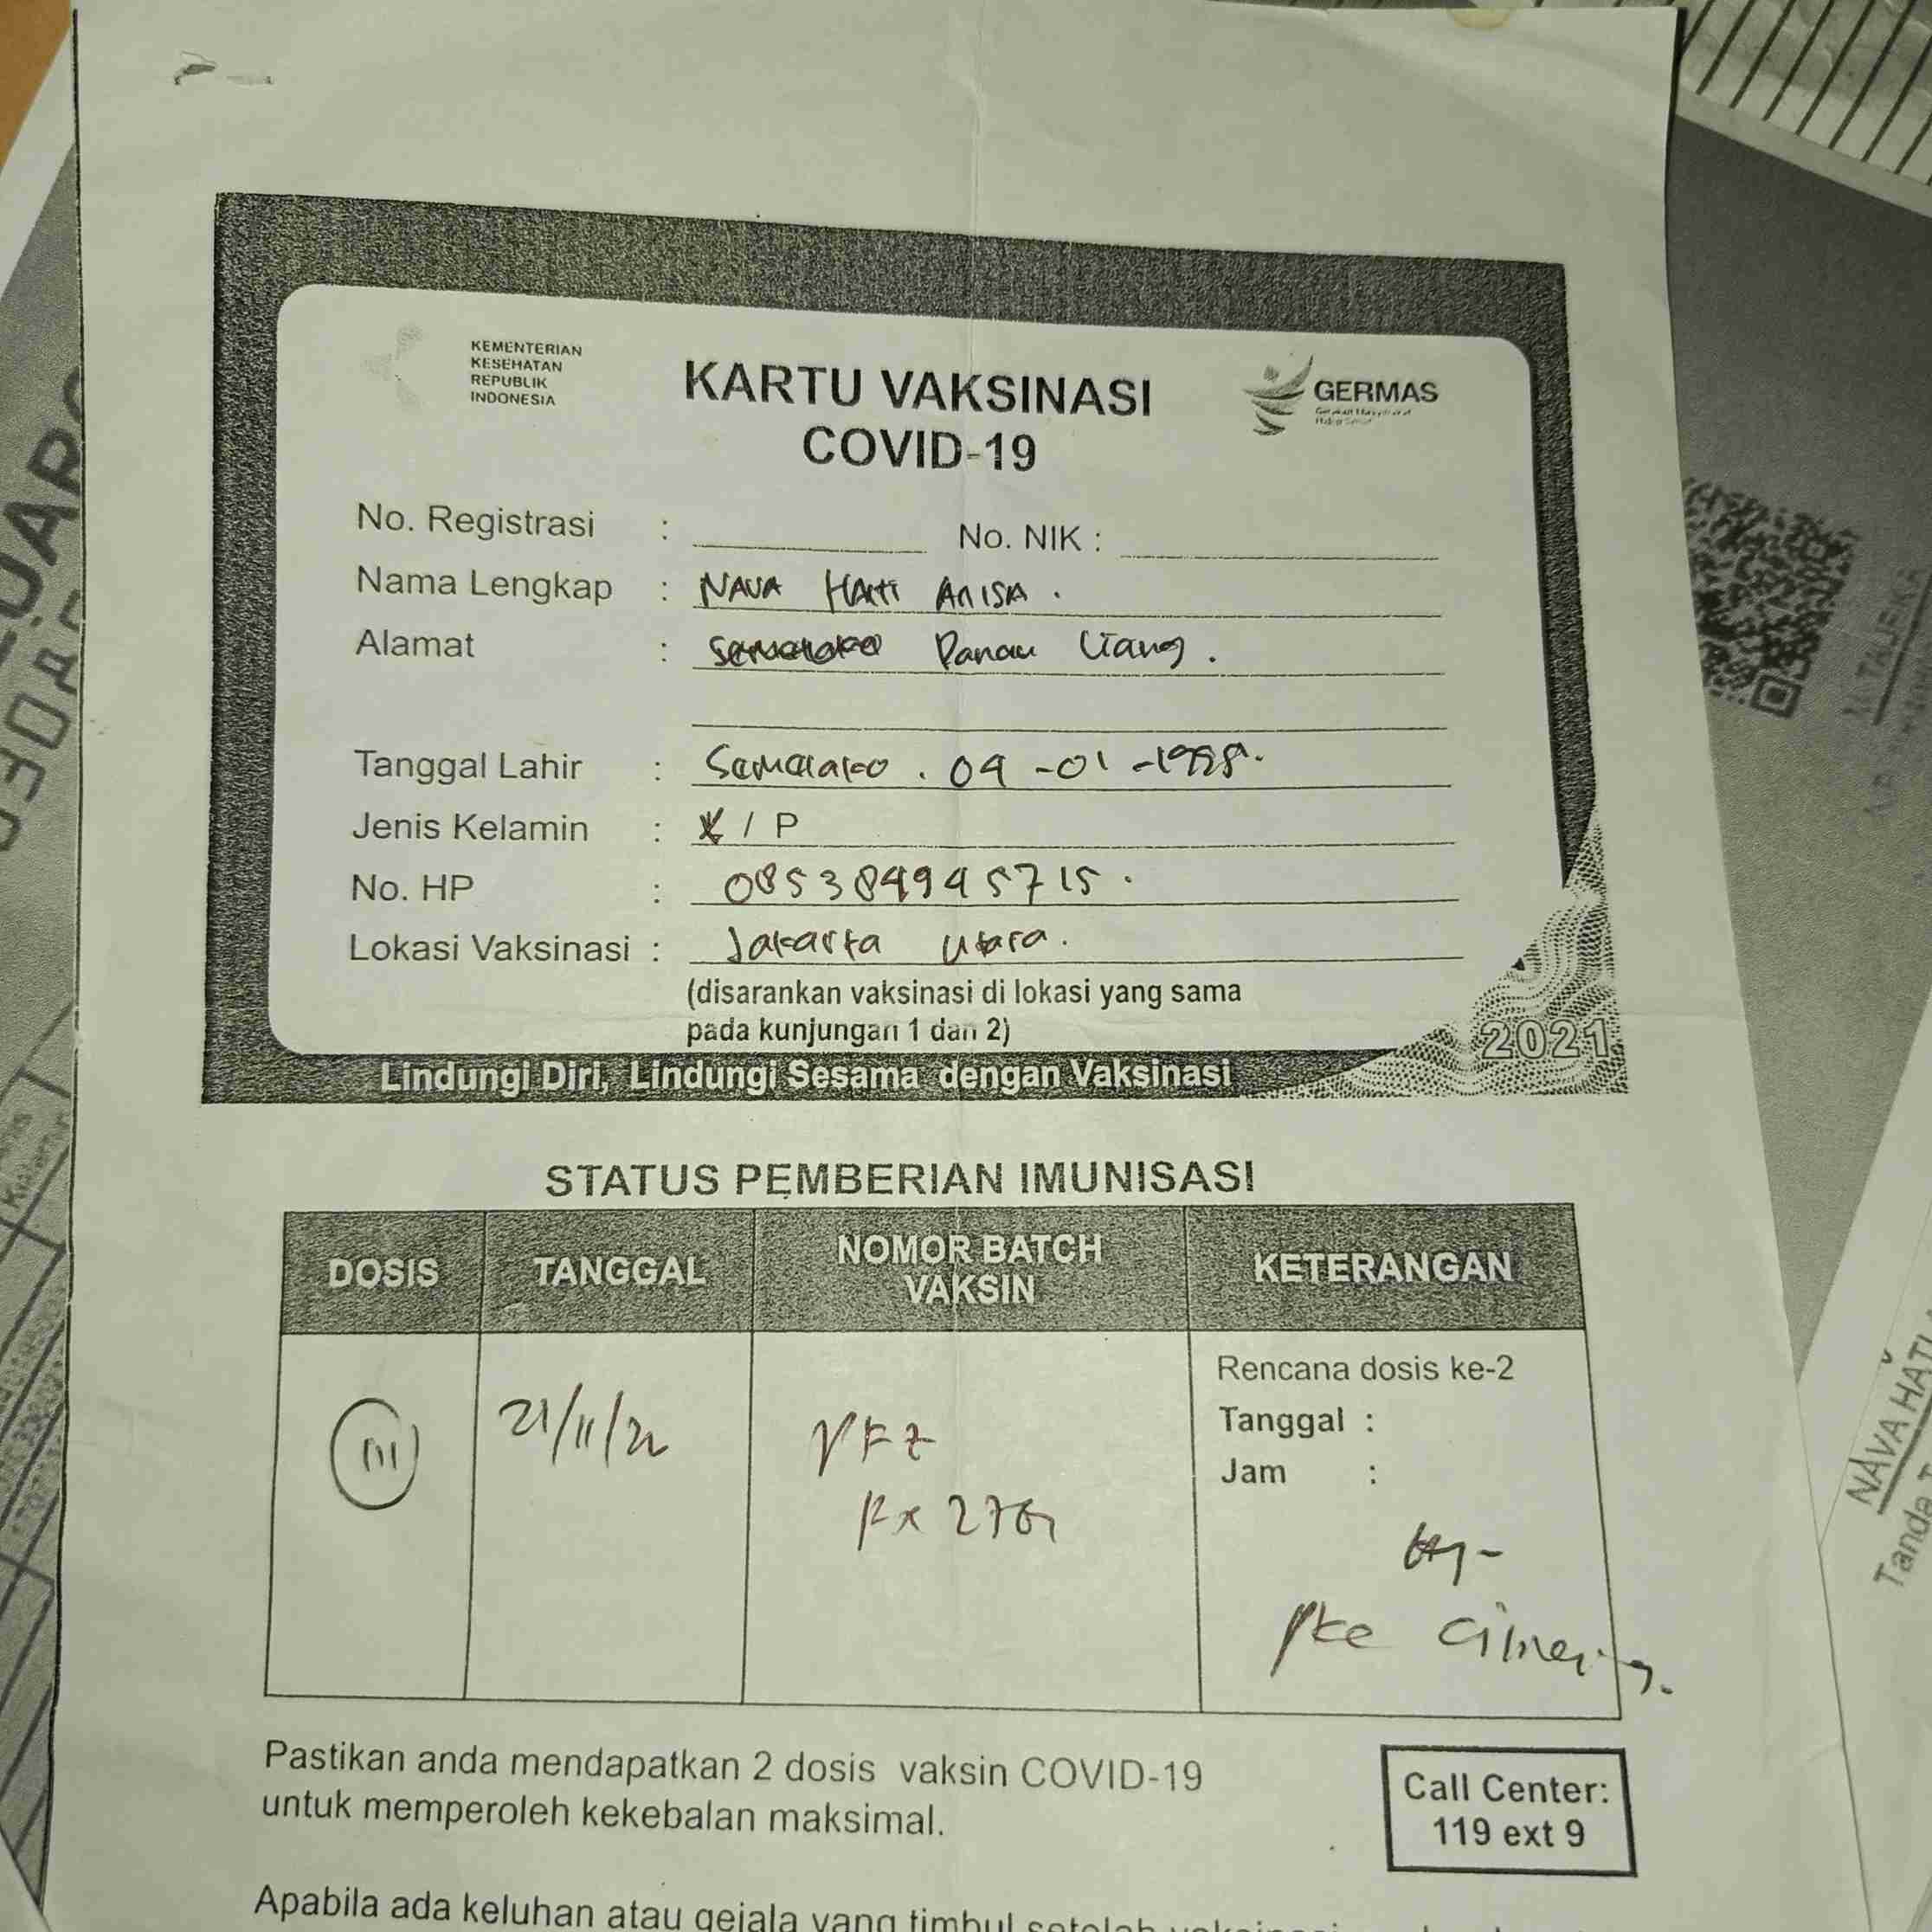 KEMENTERIAN
KESEHATAN
REPUBLIK
INDONESIA
KARTU VAKSINASI
COVID-19
GERMAS
No. Registrasi : No. NIK :
Nama Lengkap : NAVA HATI ANISA .
Alamat : Danau Liang .
Tanggal Lahir : . 09 -01 -1998.
Jenis Kelamin : L / P
No. HP : 085384945715 .
Lokasi Vaksinasi : Jakarta Utara .
(disarankan vaksinasi di lokasi yang sama
pada kunjungan 1 dan 2)
2021
Lindungi Diri, Lindungi Sesama dengan Vaksinasi
STATUS PEMBERIAN IMUNISASI
DOSIS TANGGAL NOMOR BATCH VAKSIN KETERANGAN
Rencana dosis ke-2
Tanggal :
Jam :
III 21/11/22 PFZ
Pastikan anda mendapatkan 2 dosis vaksin COVID-19
untuk memperoleh kekebalan maksimal.
Call Center:
119 ext 9
Apabila ada keluhan atau gejala yang timbul setelah
NAVA HATI
Tanda